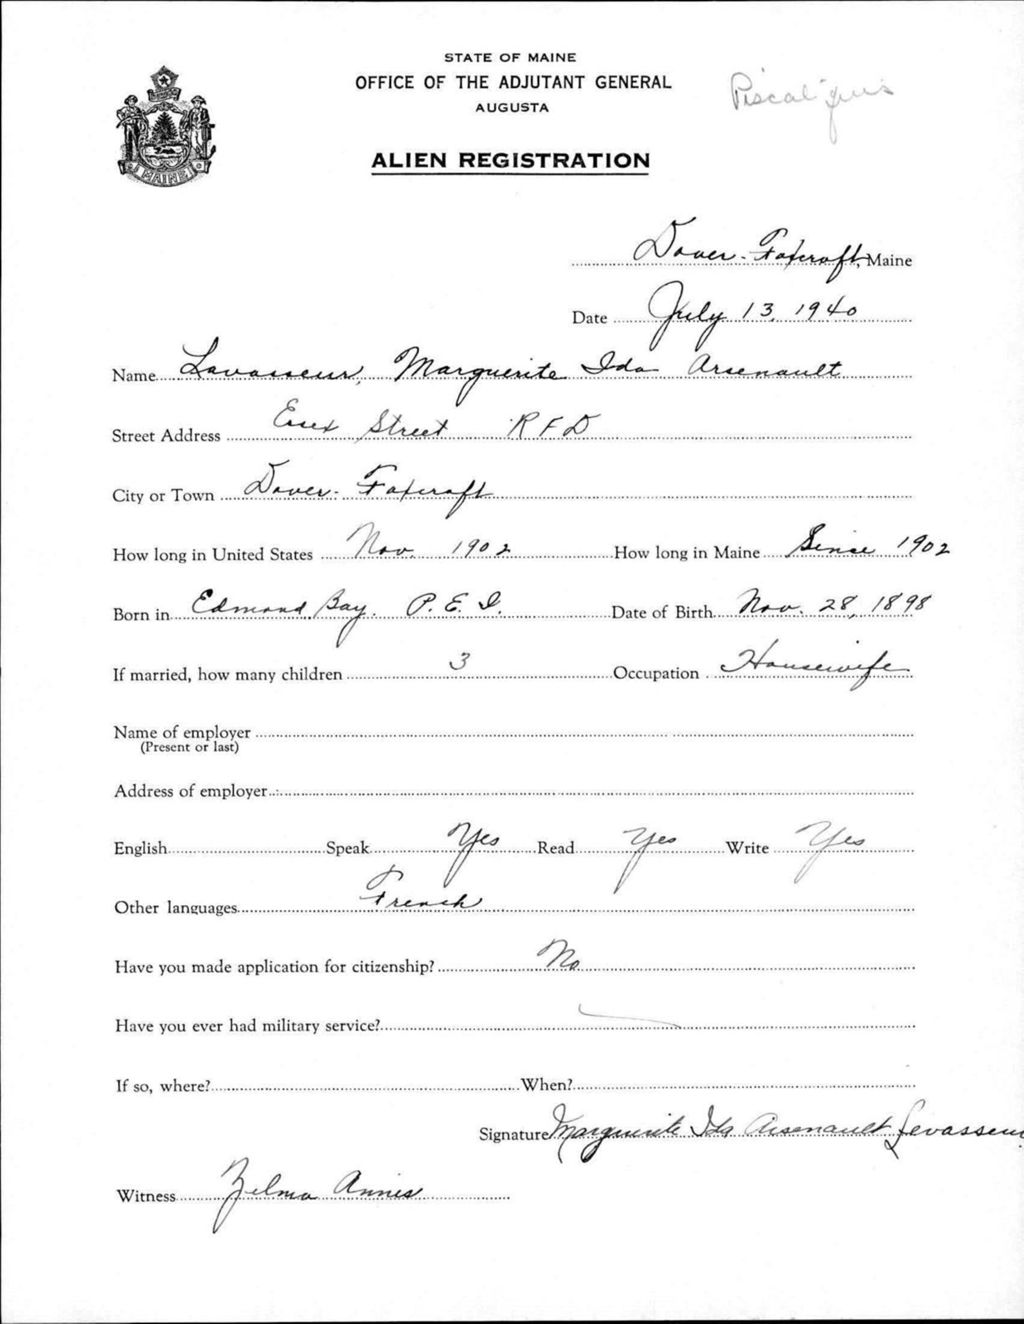 STATE OF MAINE
OFFICE OF THE ADJUTANT GENERAL
AUGUSTA
ALIEN REGISTRATION
MAINE
Dover-Foxcroft, Maine
Date July 13, 1940
Name Lavasseur, Marguerite Ida Arsenault
Street Address Essex Street R F D
City or Town Dover-Foxcroft
How long in United States Nov. 1902 How long in Maine Since 1902
Born in Edmond Bay. P. E. I. Date of Birth Nov. 28, 1898
If married, how many children 3 Occupation Housewife
Name of employer
(Present or last)
Address of employer
English Speak Yes Read Yes Write Yes
Other languages French
Have you made application for citizenship? No
Have you ever had military service?
If so, where? When?
Signature Marguerite Ida Arsenault Levasseur
Witness Zelma Annis